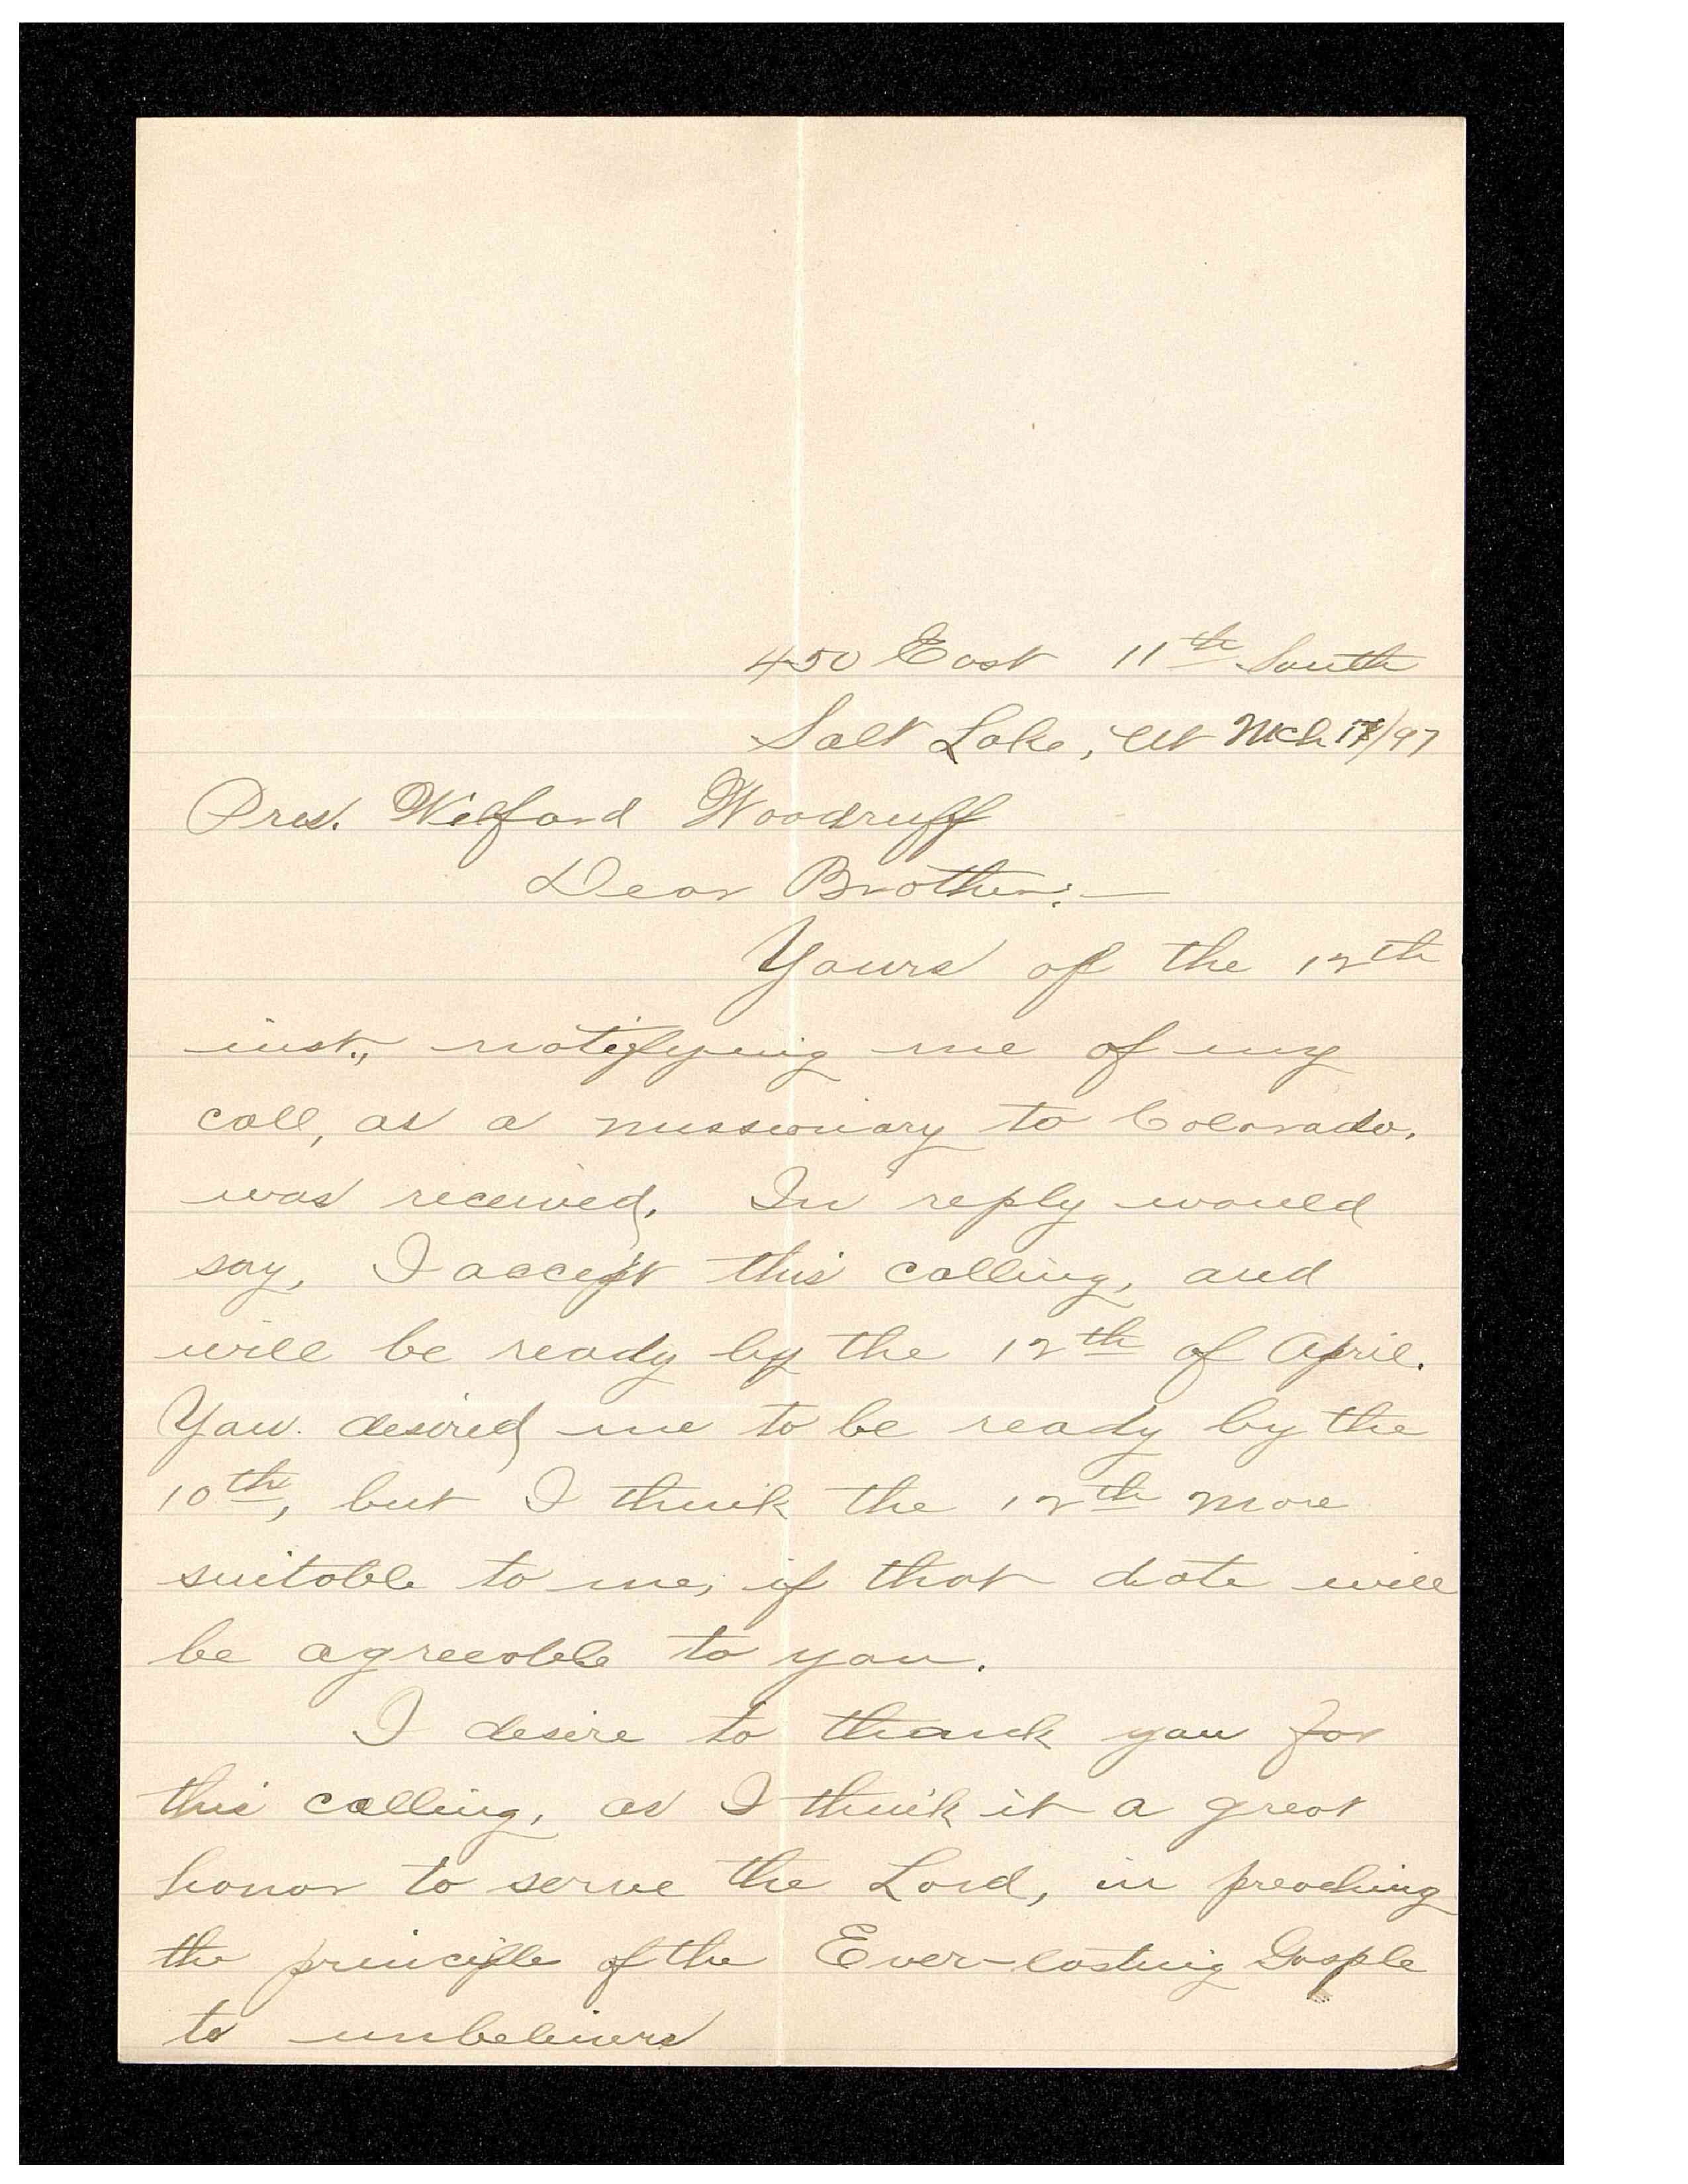 450 East 11th South
Salt Lake, Ut Mch 17/97
Pres. Wilford Woodruff
Dear Brother:—
Yours of the 12th
inst., notifying me of my
call, as a missionary to Colorado,
was received. In reply would
say, I accept this calling, and
will be ready by the 12th of April.
You desired me to be ready by the
10th, but I think the 12th more
suitable to me, if that date will
be agreeable to you.
I desire to thank you for
this calling, as I think it a great
honor to serve the Lord, in preaching
the principle of the Ever-lasting Gosple
to unbeliers